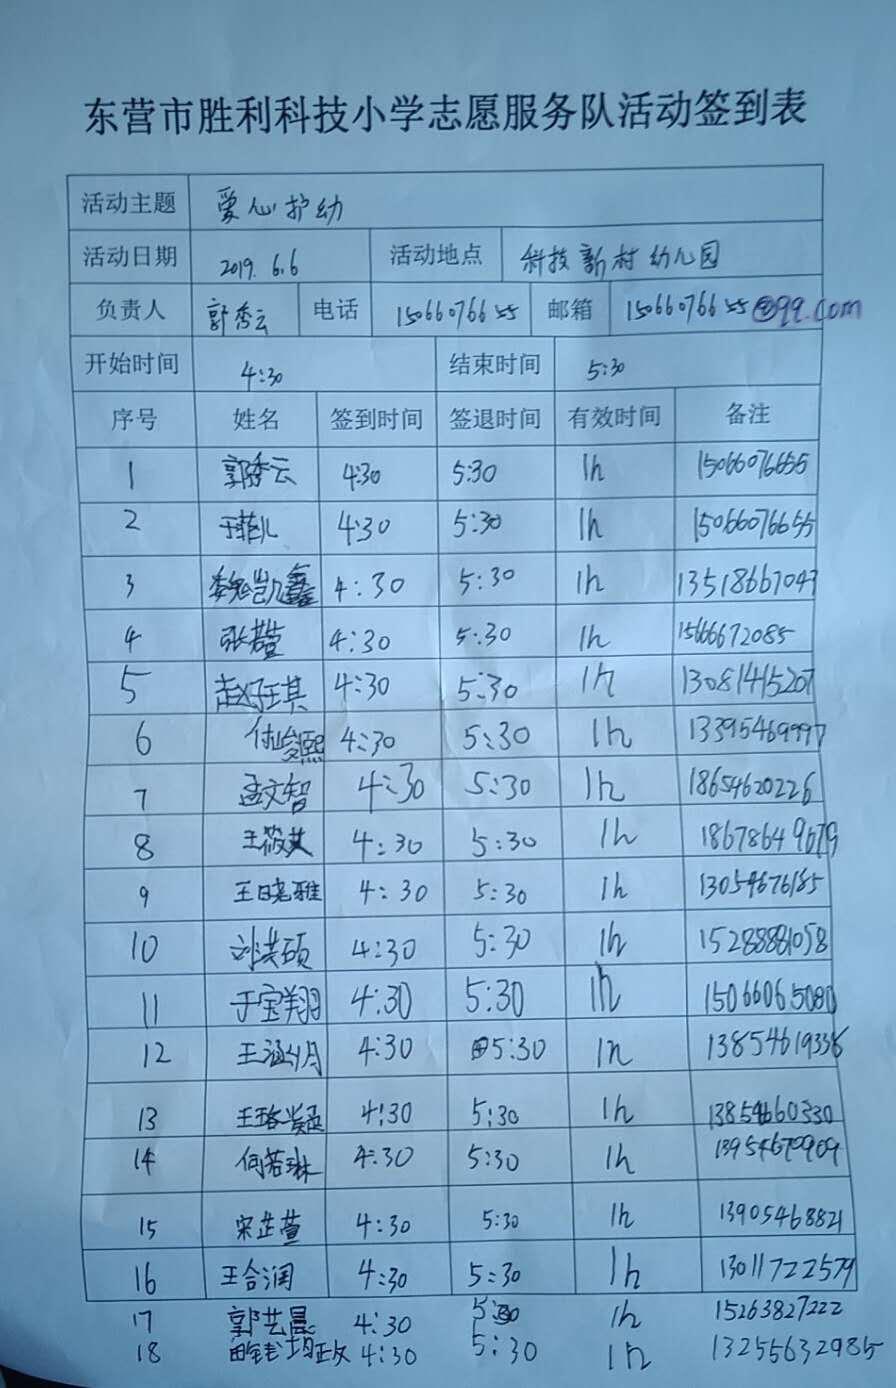 东营市胜利科技小学志愿服务队活动签到表
活动主题 爱心护幼
活动日期 2019.6.6 活动地点 科技新村幼儿园
负责人 郭秀云 电话 15066076655 邮箱 15066076655@qq.com
开始时间 4:30 结束时间 5:30
序号 姓名 签到时间 签退时间 有效时间 备注
1 郭秀云 4:30 5:30 1h 15066076655
2 于菲儿 4:30 5:30 1h 15066076655
3 魏凯鑫 4:30 5:30 1h 13518667047
4 张 4:30 5:30 1h 15666672085
5 赵子琪 4:30 5:30 1h 13081415207
6 付峻熙 4:30 5:30 1h 13395469997
7 孟文智 4:30 5:30 1h 18654620226
8 王筱 4:30 5:30 1h 18678649679
9 王晓雅 4:30 5:30 1h 13054676185
10 刘洪硕 4:30 5:30 1h 15288881058
11 于宝翔 4:30 5:30 1h 15066065080
12 王涵 4:30 5:30 1h 13854619336
13 王 4:30 5:30 1h 13854660330
14 何若琳 4:30 5:30 1h 13954670909
15 宋芷萱 4:30 5:30 1h 13905468821
16 王合润 4:30 5:30 1h 13011722579
17 郭艺晨 4:30 5:30 1h 15263827222
18 4:30 5:30 1h 13255632985